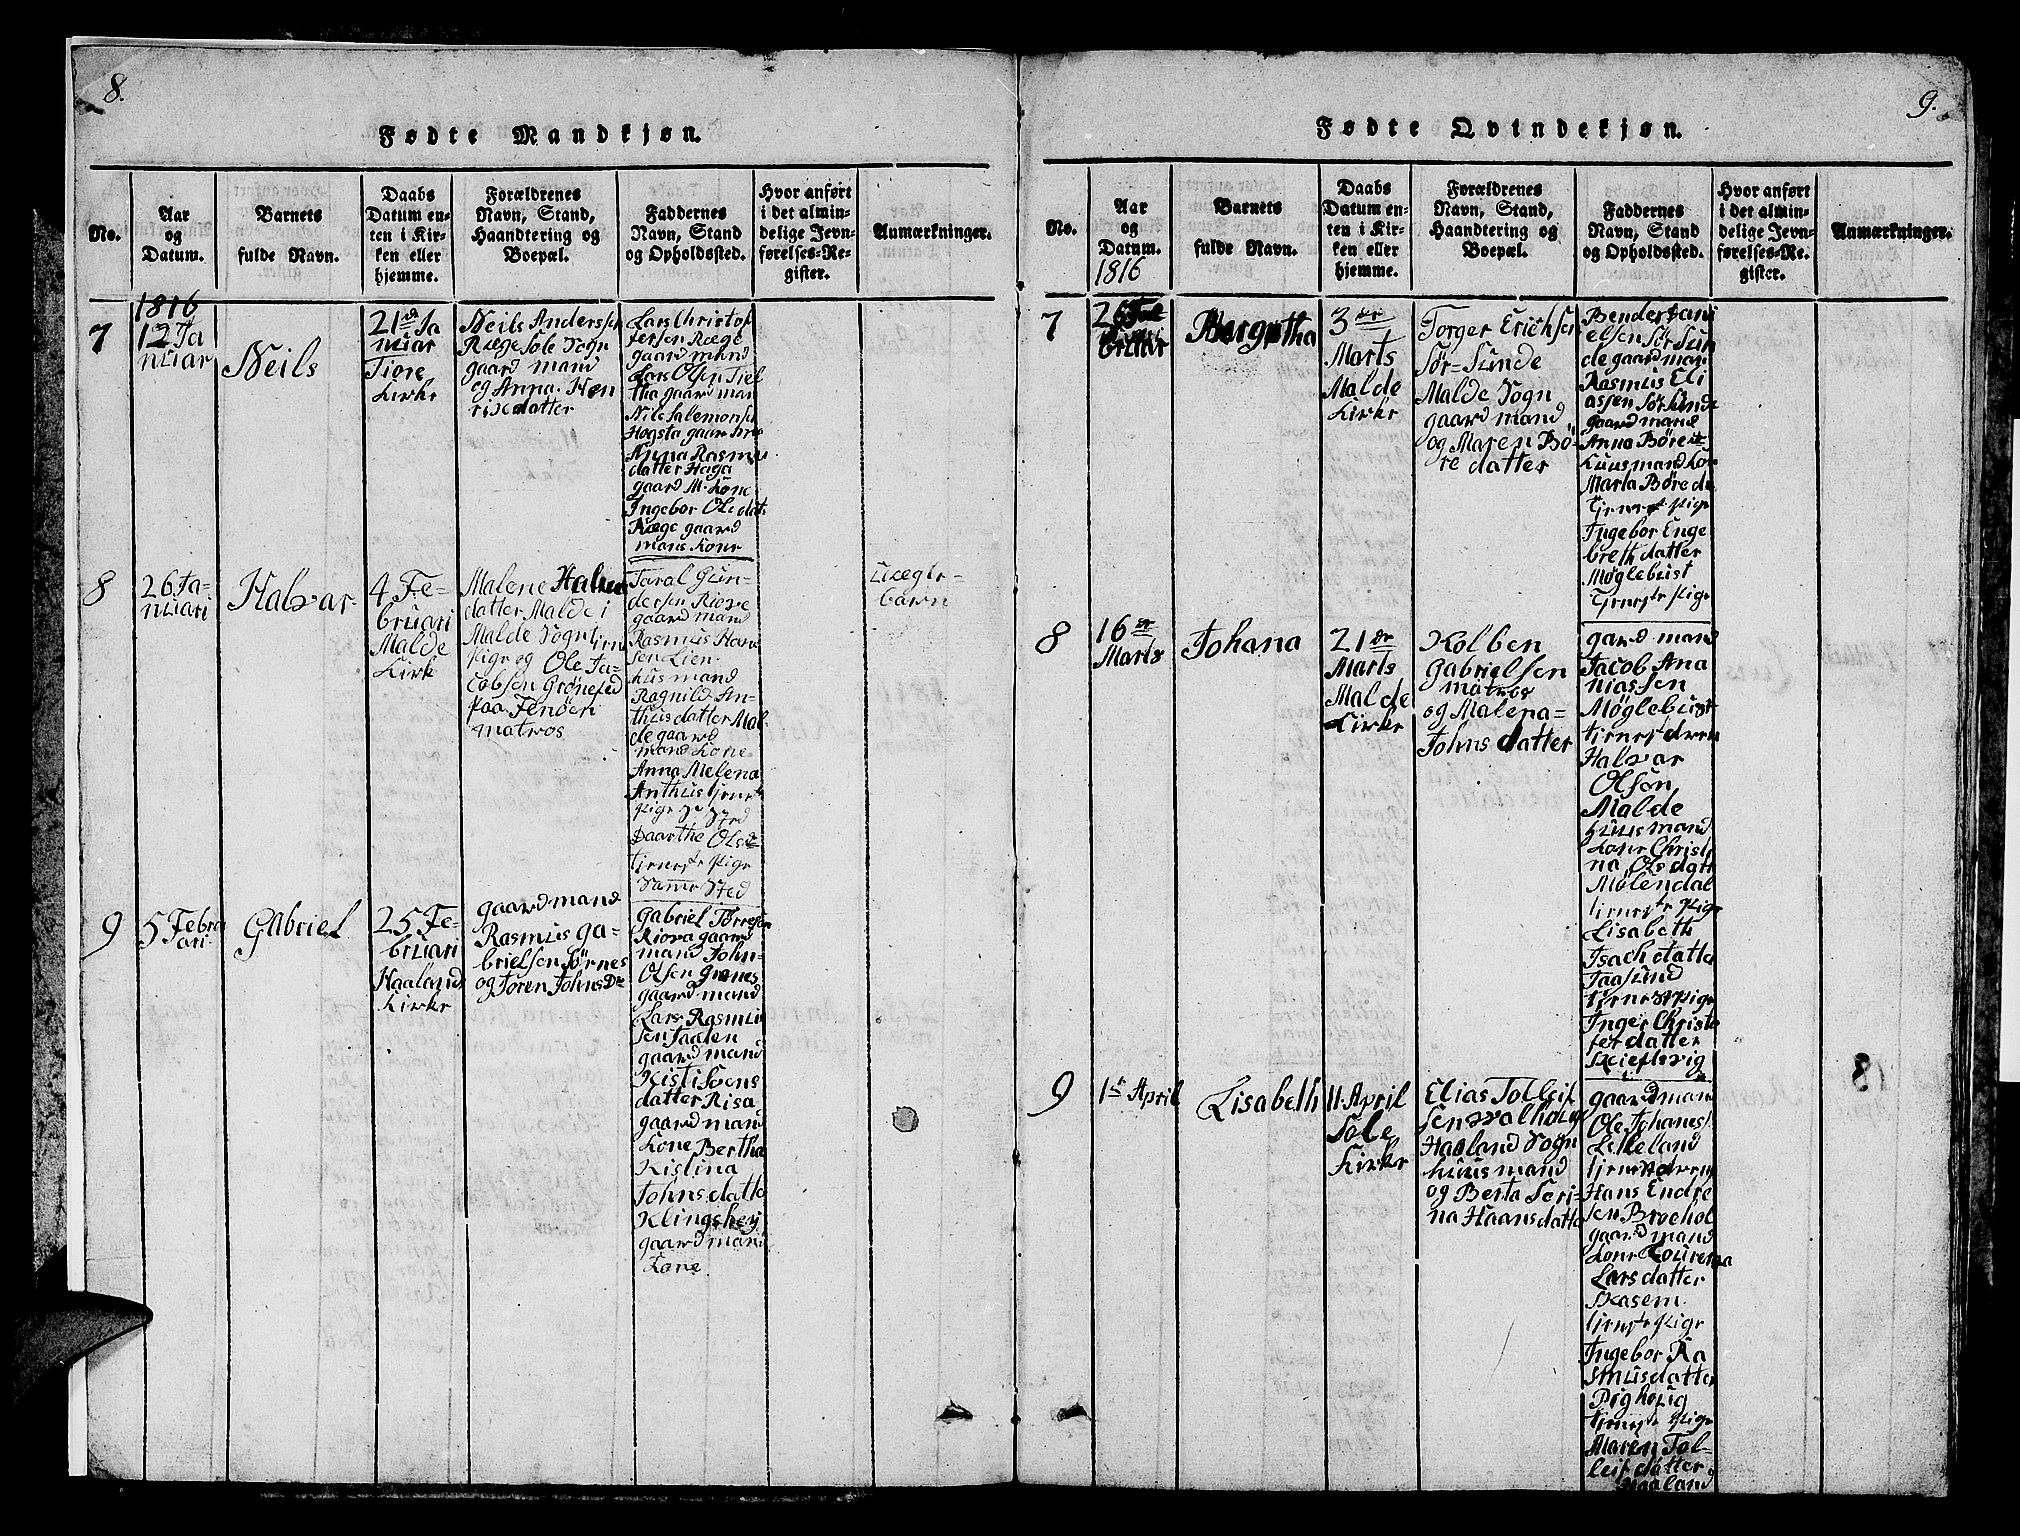 8.
Fødte Mandkjøn.
No.
Aar
og
Datum.
Barnets
fulde Navn.
Daabs
Datum en-
ten i Kir-
ken eller
hjemme.
Forældrenes
Navn, Stand,
Haandtering og
Boepæl.
Faddernes
Navn, Stand
og Opholdssted.
Hvor anført
i det almin-
delige Jevn-
førelses-Re-
gister.
Anmærkninger.
1816
7
12 Ja
nuar
Neils
21 Ja
nuar
Tiore
Kirke
Neils Anderssen
Ræge Sole Sogn
gaard mand
og Anna Hen
rix datter
Lars Christof
fersen Ræge
gaard mand
Lars Olsen Tiel
tha gaard man
Nils Salemons
Hogsta gaar
Anna Rasmu
datter Haga
gaard M. Kone
Ingebor Ole dat.
Ræge gaard
mans Kone
8
26 Ja-
nuari
Halvar
4 Fe-
bruari
Malde
Kirk
Malene Halver
datter Malde i
Malde Sogn tjene
pige og Ole Ja-
cobsen Grønested
paa Fenøen
matros
Taral Gun-
dersen Riove
gaard mand
Rasmus Han
sen Lien
hus mand
Ragnild An-
thus datter Mal
de gaard
mand Kone
Anna Melena
Anthus tjeneste
pige
Daarthe Ols
tjeneste pige
Samme Sted
Uægte-
barn
9
5 Febru
ari
Gabriel
25 Fe-
bruari
Haaland
Kirke
gaard mand
Rasmus Ga-
brielsen Sørnes
og Soren Johns
Gabriel Torresen
Riova gaard
mand John
Olsen Grønes
gaard mand
Lars Rasmu
sen Taalen
gaard mand
Kisti Soens
datter Risa
gaard man
Kone Bertha
Kistina
Johns datte
Klingshey
gaard man
Kone
9.
Fødte Qvindekjøn.
No.
Aar
og
Datum.
1816
Barnets
fulde Navn.
Daabs
Datum en-
ten i Kir-
ken eller
hjemme.
Forældrenes
Navn, Stand,
Haandtering og
Boepæl.
Faddernes
Navn, Stand
og Opholdssted.
Hvor anført
i det almin-
delige Jevn-
førelses-Re-
gister.
Anmærkninger.
7
26 Fe
bruar
Bergitha
3
Marts
Malde
Kirke
Torger Erichsen
Sør-Sunde
Malde Sogn
gaard mand
og Maren Bø-
re datter
Bender Dani
elsen Sør Sun
de gaard man
Rasmus Eli
assen Sør Sunde
gaard mand
Anna Børe
Huusmand Kon
Marta Børe da
tjeneste pige
Ingebor Enge
breth datter
Møglebust
tjeneste pige
8
16
Marts
Johana
21
Marts
Malde
Kirke
Kolben
Gabrielsen
matros
og Malena
Johns datter
gard mand
Jacob Ana
niassen
Møglebust
tjenest dren
Halvar
Olsøn
Malde
Huus mand
Kone Christi
na Ols datt
Mølendal
tjeneste pige
Lisabeth
Isach datte
Taasund
tjenerst pige
Inger Christo
fer datter
Skieflsvig
9
1 April
Lisabeth
11 April
Sole
Kirke
Elias Tolleif
sen Valhoug
Haaland Sogn
huus mand
og Berta Seri-
na Haans datte
gaard man
Ole Johanes
Lelleland
tjenest dreng
Hans Endre
sen Broehol
gaard mand
Kone Lourensa
Lars datter
Skasem
tjeneste pige
Ingebor Ra
smus datter
tjeneste pige
Maren Tol-
leif datter
Haaland